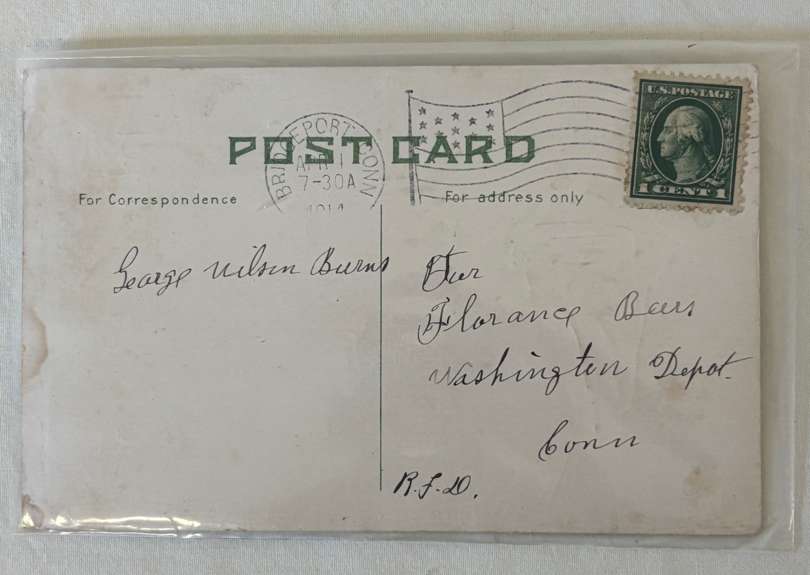 U.S. POSTAGE
1 CENT 1
BRIDGEPORT CONN
APR 1
7-30A
1914
POST CARD
For Correspondence
For address only
George Wilson Burns
For
Florance Bears
Washington Depot.
Conn
R.F.D.